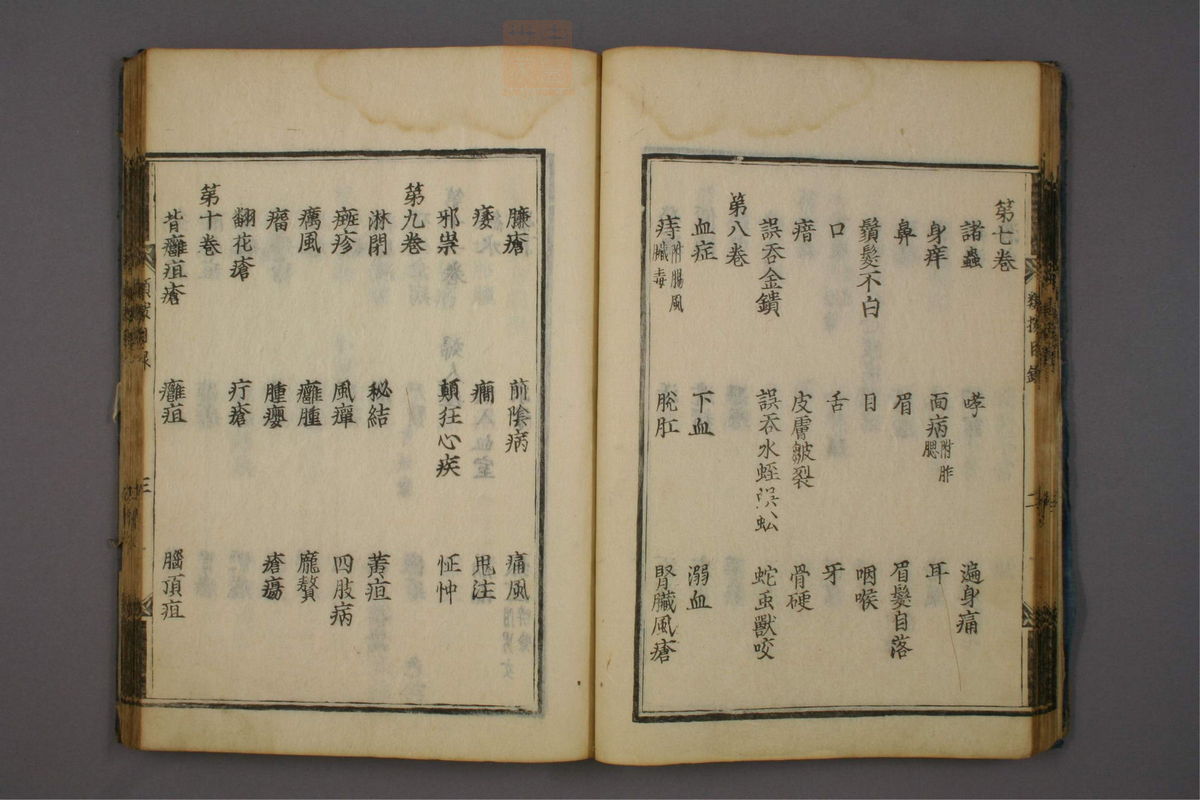 第七卷
諸蟲 哮 遍身痛
身痒 面病附胙腮 耳
鼻 眉 眉髮自落
鬚髮不白 目 咽喉
口 舌 牙
瘖 皮膚皴裂 骨硬
誤吞金鐀 誤吞水蛭蜈蚣 蛇虫獸咬
第八卷
血症 下血 溺血
痔附腸風臟毒 脫肛 腎臟風瘡
臁瘡 前陰病 痛風
痿 癇 鬼注
邪祟 顛狂心疾 怔忡
第九卷
淋閉 秘結 黃疸
斑疹 風癉 四肢病
癘風 癰腫 龐贅
瘤 腫癭 瘡瘍
翻花瘡 疔瘡
第十卷
背癰疽瘡 癰疽 腦頂疽
三